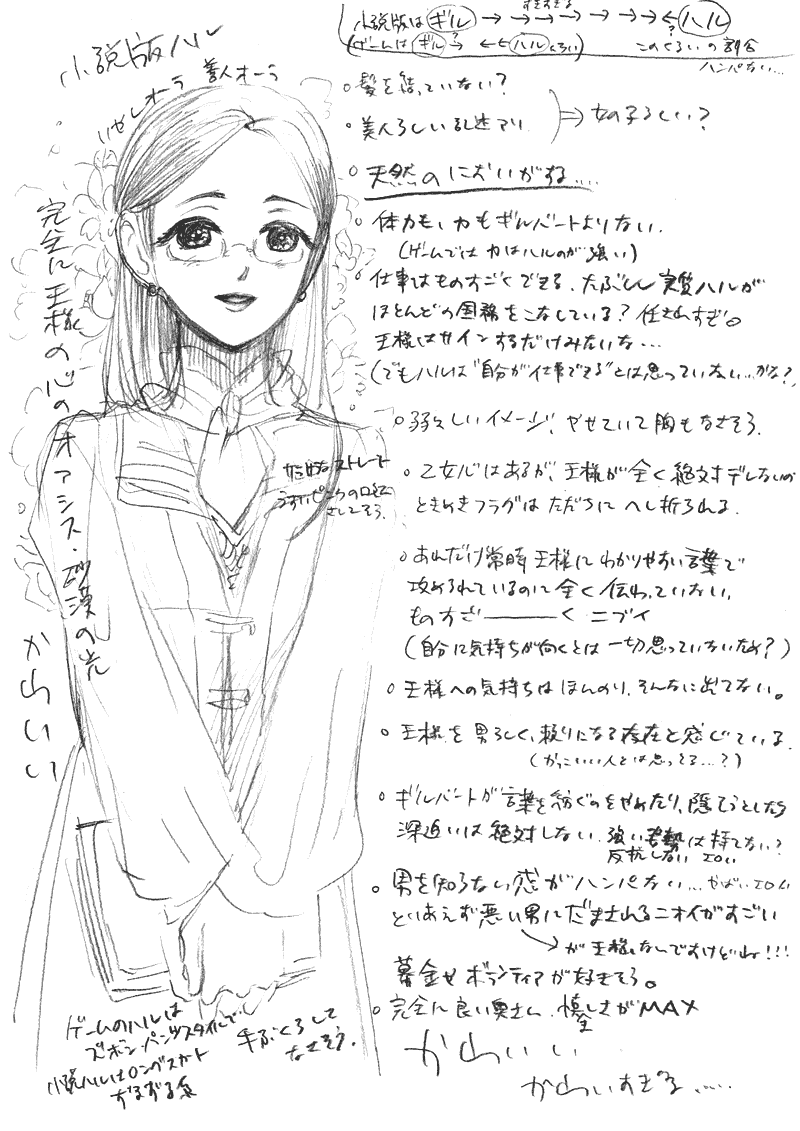 小説版ハル
いやしオーラ 美人オーラ
完全に王様の心のオアシス・砂漠の光
かわいい
小説版は ギル →→→→→→→← ハル
すきすぎる
?
(ゲームは ギル → ←← ハル くらい)
?
このくらいの割合
ハンパない…
○髪を結っていない?
○美人らしい記述アリ
⇒女の子らしい?
○天然のにおいがする……
○体力も、力もギルバートよりない。
(ゲームでは力はハルのが強い)
○仕事はものすごくできる。たぶんし実質ハルが
ほとんどの国務をこなしている?任されすぎ。
王様はサインするだけみたいな…
(でもハルは“自分が仕事できる”とは思っていない…かな?)
○弱々しいイメージ、やせていて胸もなさそう。
ストレート
うすいピンクの口紅
さしてそう。
○乙女心はあるが、王様が全く絶対デレないので
ときめきフラグはただちにへし折られる。
○あれだけ常時王様にわかりやすい言葉で
攻められているのに全く伝わっていない。
ものすごーーーく ニブイ
(自分に気持ちが向くとは一切思っていないため?)
○王様への気持ちはほんのり。そんなに出てない。
○王様を男らしく、頼りになる存在と感じている。
(かっこいい人とは思ってる…?)
○ギルバートが言葉を紡ぐのをやめたり、隠そうとしたら
深追いは絶対しない。強い姿勢は持てない?
反抗しない エロい
○男を知らない感がハンパない… やばいエロい
とりあえず悪い男にだまされるニオイがすごい
→が王様しないですけどね!!!
募金やボランティアが好きそう。
○完全に良い奥さん、慎しさがMAX
かわいい
かわいすぎる……
ゲームのハルは
ズボン・パンツスタイルで
小説ハルはロングスカート
ずるずる系
手ぶくろして
なさそう。